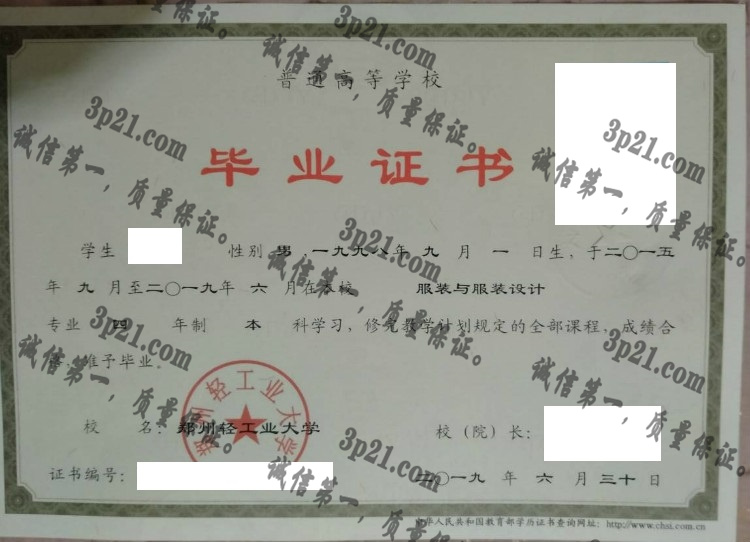 普通高等学校
毕业证书
学生 性别 男,一九九八年 九 月 一 日生,于二〇一五
年 九 月至二〇一九年 六 月在本校 服装与服装设计
专业 四 年制 本 科学习,修完教学计划规定的全部课程,成绩合
格,准予毕业。
郑州轻工业大学
校 名:郑州轻工业大学 校(院)长:
证书编号: 二〇一九 年 六 月 三十 日
中华人民共和国教育部学历证书查询网址:http://www.chsi.com.cn
3p21.com
诚信第一,质量保证。
3p21.com
诚信第一,质量保证。
3p21.com
诚信第一,质量保证。
3p21.com
诚信第一,质量保证。
3p21.com
诚信第一,质量保证。
3p21.com
诚信第一,质量保证。
3p21.com
诚信第一,质量保证。
3p21.com
诚信第一,质量保证。